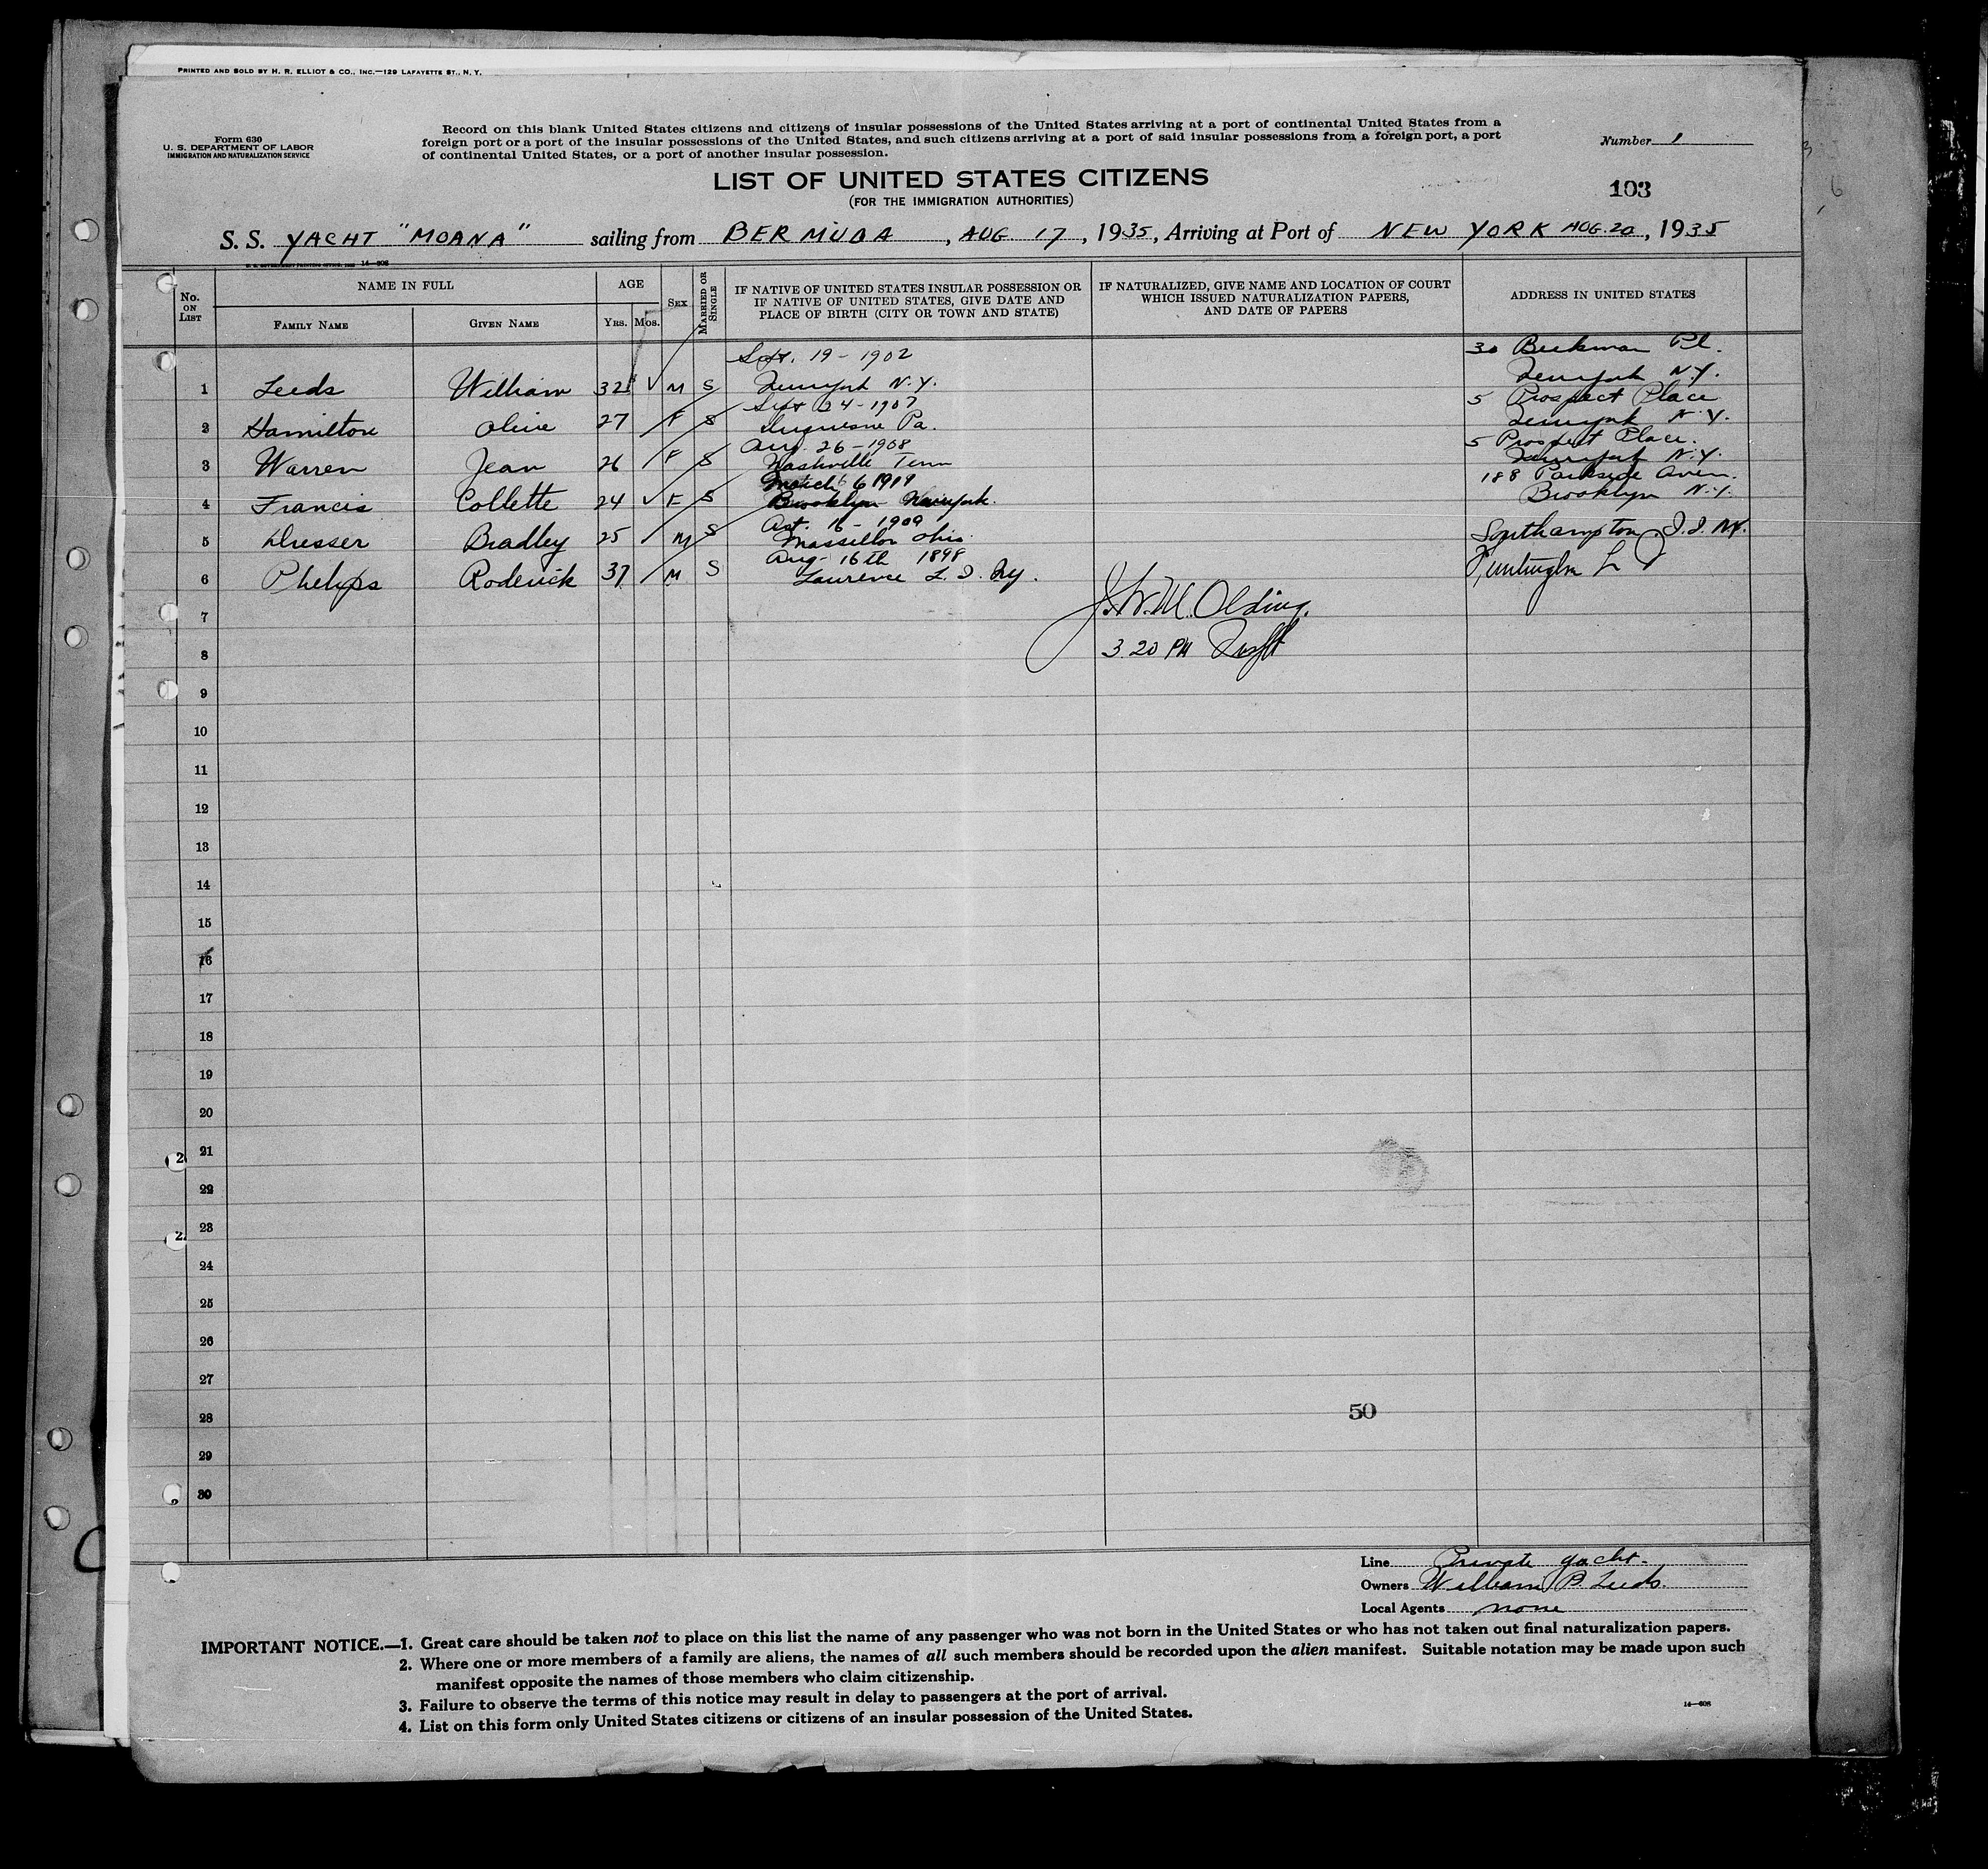 PRINTED AND SOLD BY H. R. ELLIOT & CO., INC.—129 LAFAYETTE ST., N. Y.
Form 630
U. S. DEPARTMENT OF LABOR
IMMIGRATION AND NATURALIZATION SERVICE
Record on this blank United States citizens and citizens of insular possessions of the United States arriving at a port of continental United States from a
foreign port or a port of the insular possessions of the United States, and such citizens arriving at a port of said insular possessions from a foreign port, a port
of continental United States, or a port of another insular possession.
Number 1
LIST OF UNITED STATES CITIZENS
(FOR THE IMMIGRATION AUTHORITIES)
103
S. S. YACHT "MOANA" sailing from BERMUDA, AUG. 17, 1935, Arriving at Port of NEW YORK AUG. 20, 1935
No. ON LIST
NAME IN FULL
FAMILY NAME
GIVEN NAME
AGE
YRS.
MOS.
SEX
MARRIED OR SINGLE
IF NATIVE OF UNITED STATES INSULAR POSSESSION OR
IF NATIVE OF UNITED STATES, GIVE DATE AND
PLACE OF BIRTH (CITY OR TOWN AND STATE)
IF NATURALIZED, GIVE NAME AND LOCATION OF COURT
WHICH ISSUED NATURALIZATION PAPERS,
AND DATE OF PAPERS
ADDRESS IN UNITED STATES
Sept. 19 - 1902 30 Beekman Pl.
1 Leeds William 32 M S New York N.Y. New York N.Y.
Sept 24 - 1907 5 Prospect Place
2 Hamilton Olive 27 F S Duquesne Pa. New York N.Y.
Aug. 26 - 1908 5 Prospect Place.
3 Warren Jean 26 F S Nashville Tenn New York N.Y.
March 6 19 188 Parkside Aven.
4 Francis Collette 24 F S Brooklyn New York. Brooklyn N.Y.
Oct. 16 - 1909
5 Dresser Bradley 25 M S Massillon Ohio. Southampton L.I. N.Y.
Aug 16th 1898
6 Phelps Roderick 37 M S Lawrence L. I. Ny. Huntington L I
7
8 3 20 PM
9
10
11
12
13
14
15
16
17
18
19
20
21
22
23
24
25
26
27
28
50
29
30
Line Private yacht.
Owners William B. Leeds.
Local Agents none
IMPORTANT NOTICE.—1. Great care should be taken not to place on this list the name of any passenger who was not born in the United States or who has not taken out final naturalization papers.
2. Where one or more members of a family are aliens, the names of all such members should be recorded upon the alien manifest. Suitable notation may be made upon such
manifest opposite the names of those members who claim citizenship.
3. Failure to observe the terms of this notice may result in delay to passengers at the port of arrival.
4. List on this form only United States citizens or citizens of an insular possession of the United States.
14—608